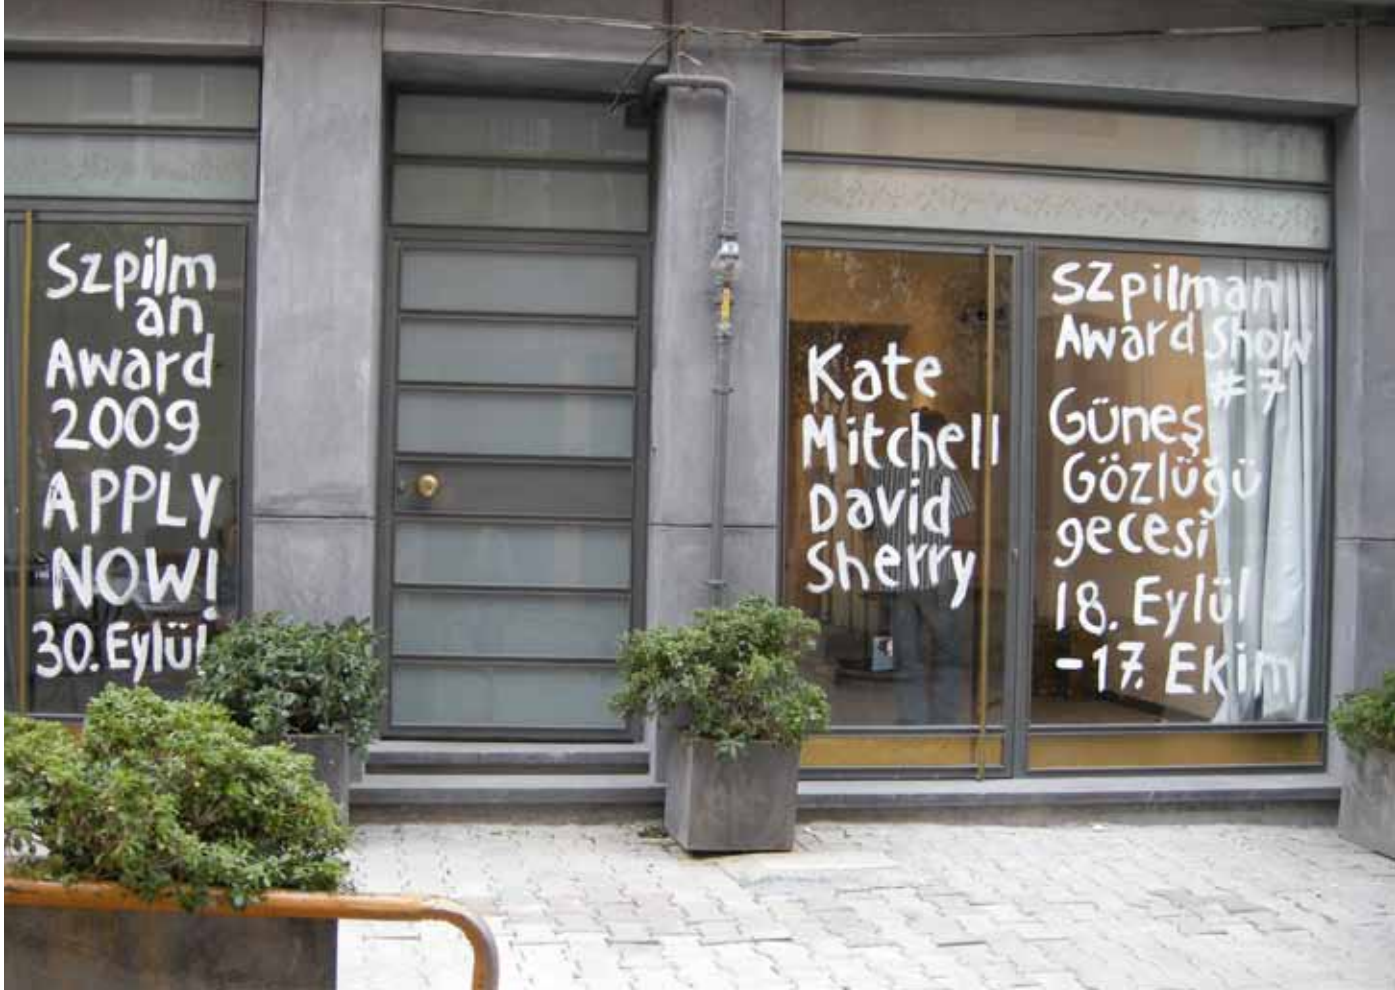 Szpilm
an
Award
2009
APPLY
NOW!
30. Eylül
Kate
Mitchell
David
Sherry
SZpilman
Award Show
# 7
Güneş
Gözlüğü
gecesi
18. Eylül
-17. Ekim